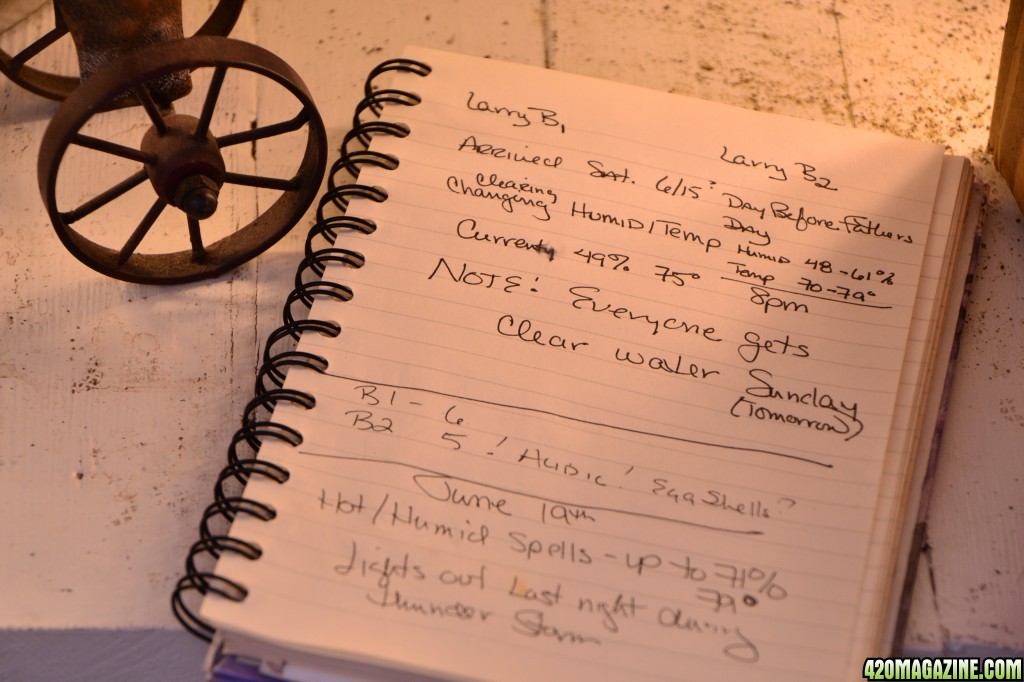 Larry B1
Larry B2
Arrived Sat. 6/15 : Day Before Fathers Day
Clearing
Changing Humid/Temp Humid 48-61%
Temp 70-79°
Current 49% 75° 8pm
Note: Everyone gets
Clear water Sunday
(Tomorrow)
B1 - 6
B2 5 ! Acidic! Egg Shells?
June 19th
Hot/Humid Spells - up to 71%
79°
Lights out Last night during
Thunder Storm
420MAGAZINE.COM